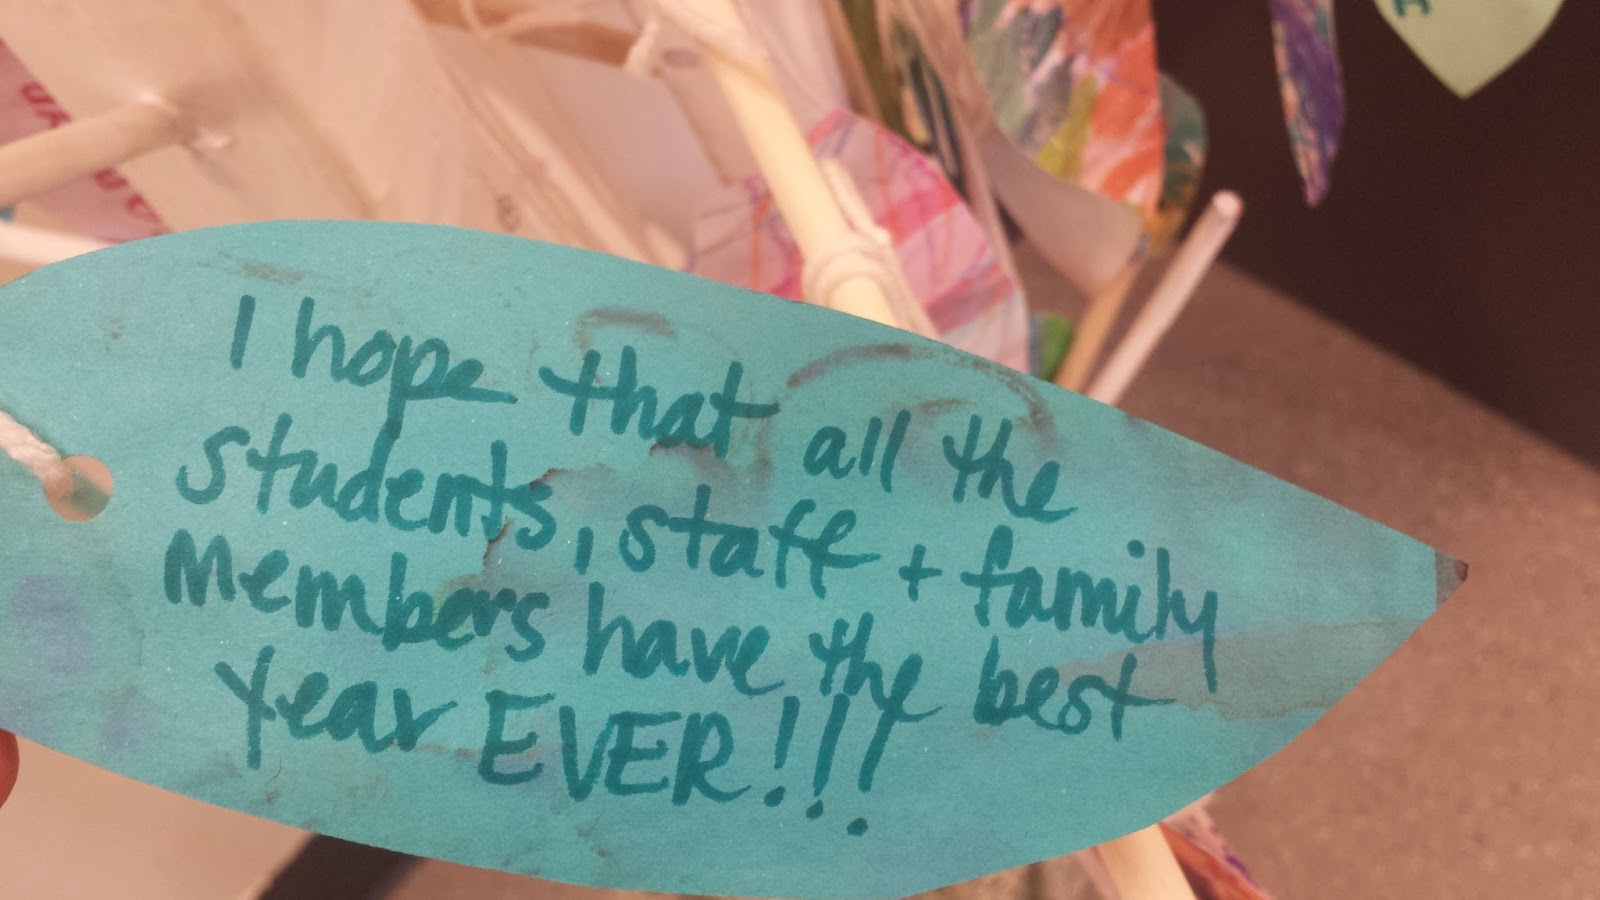 I hope that all the
students, staff + family
members have the best
year EVER!!!